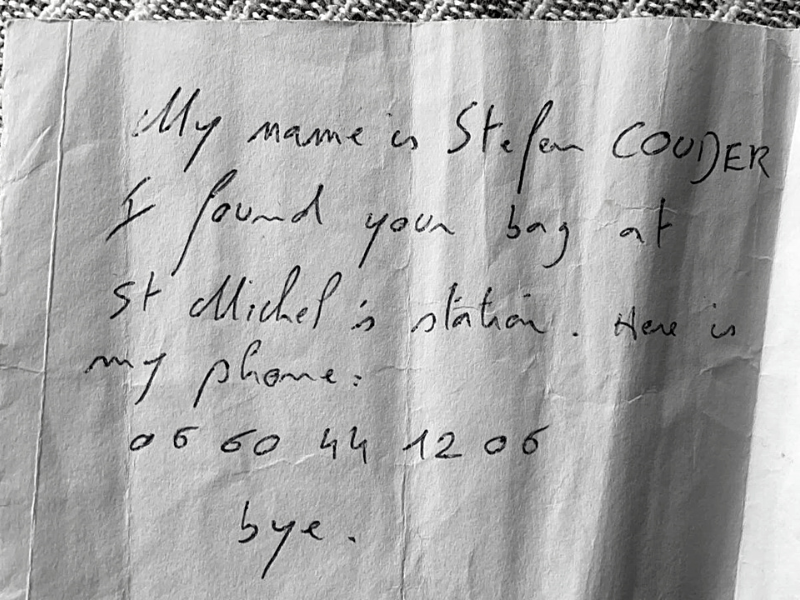 My name is Stefan COUDER
I found your bag at
St Michel's station. Here is
my phone:
06 60 44 12 06
bye.